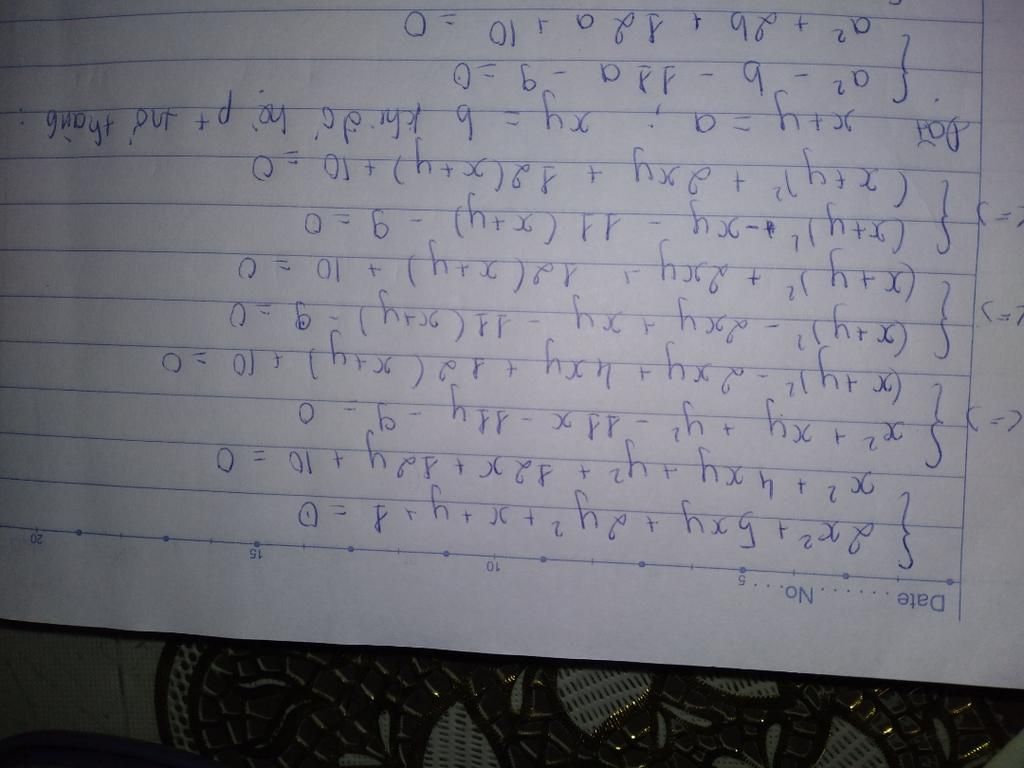 Date ....... No. ...
5 10 15 20
{ 2x² + 5xy + 2y² + x + y + 1 = 0
x² + 4xy + y² + 12x + 12y + 10 = 0
<=> { x² + xy + y² - 11x - 11y - 9 = 0
(x+y)² - 2xy + 4xy + 12(x+y) + 10 = 0
<=> { (x+y)² - 2xy + xy - 11(x+y) - 9 = 0
(x+y)² + 2xy + 12(x+y) + 10 = 0
<=> { (x+y)² - xy - 11(x+y) - 9 = 0
(x+y)² + 2xy + 12(x+y) + 10 = 0
Đặt x+y = a ; xy = b khi đó hệ pt trở thành :
{ a² - b - 11a - 9 = 0
a² + 2b + 12a + 10 = 0